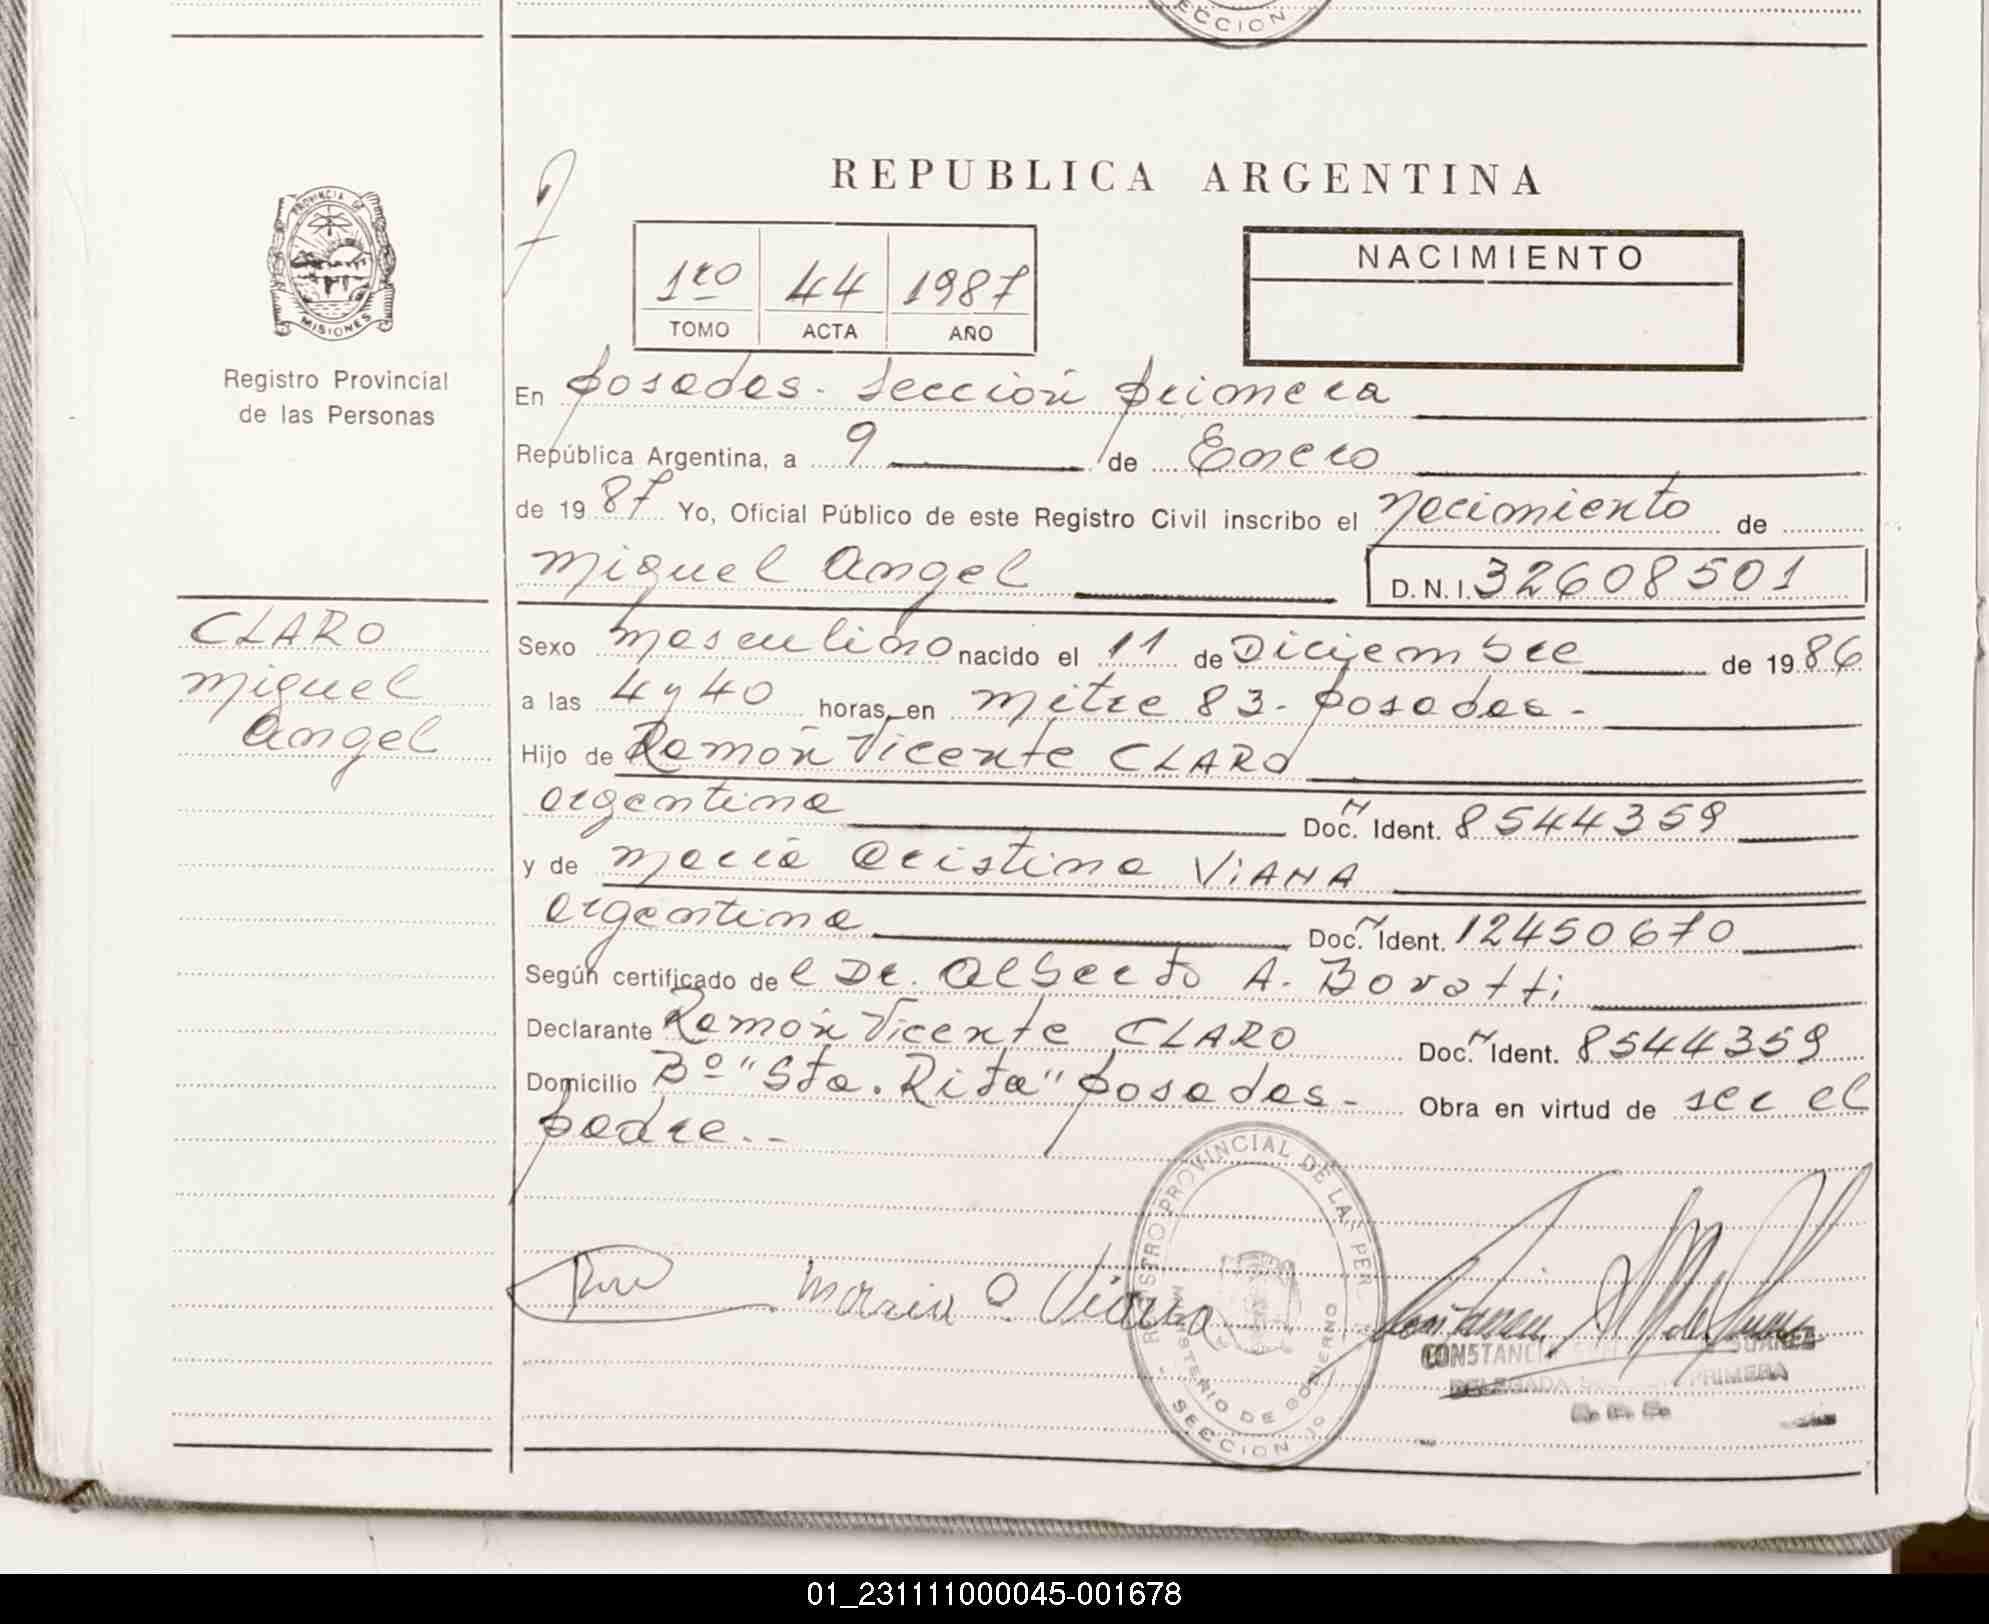 ECCION
REPUBLICA ARGENTINA
PROVINCIA DE
MISIONES
Registro Provincial
de las Personas
1ro 44 1987
TOMO ACTA AÑO
NACIMIENTO
En Posadas - Sección Primera
República Argentina, a 9 de Enero
de 1987 Yo, Oficial Público de este Registro Civil inscribo el Nacimiento de
Miguel Angel D.N.I. 32608501
CLARO
Miguel
Angel
Sexo Masculino nacido el 11 de Diciembre de 1986
a las 4 y 40 horas, en Mitre 83 - Posadas -
Hijo de Ramón Vicente CLARO
argentina Doc. N Ident. 8544359
y de María Cristina VIANA
argentina Doc. N Ident. 12450670
Según certificado de l Dr. Alberto A. Boratti
Declarante Ramón Vicente CLARO Doc. N Ident. 8544359
Domicilio Bº "Sta. Rita" Posadas - Obra en virtud de ser el
padre.--
REGISTRO PROVINCIAL DE LAS PER
MINISTERIO DE GOBIERNO
SECCION 1º
Maria C Viana
CONSTANCIA SUAREZ
DELEGADA PRIMERA
01_231111000045-001678